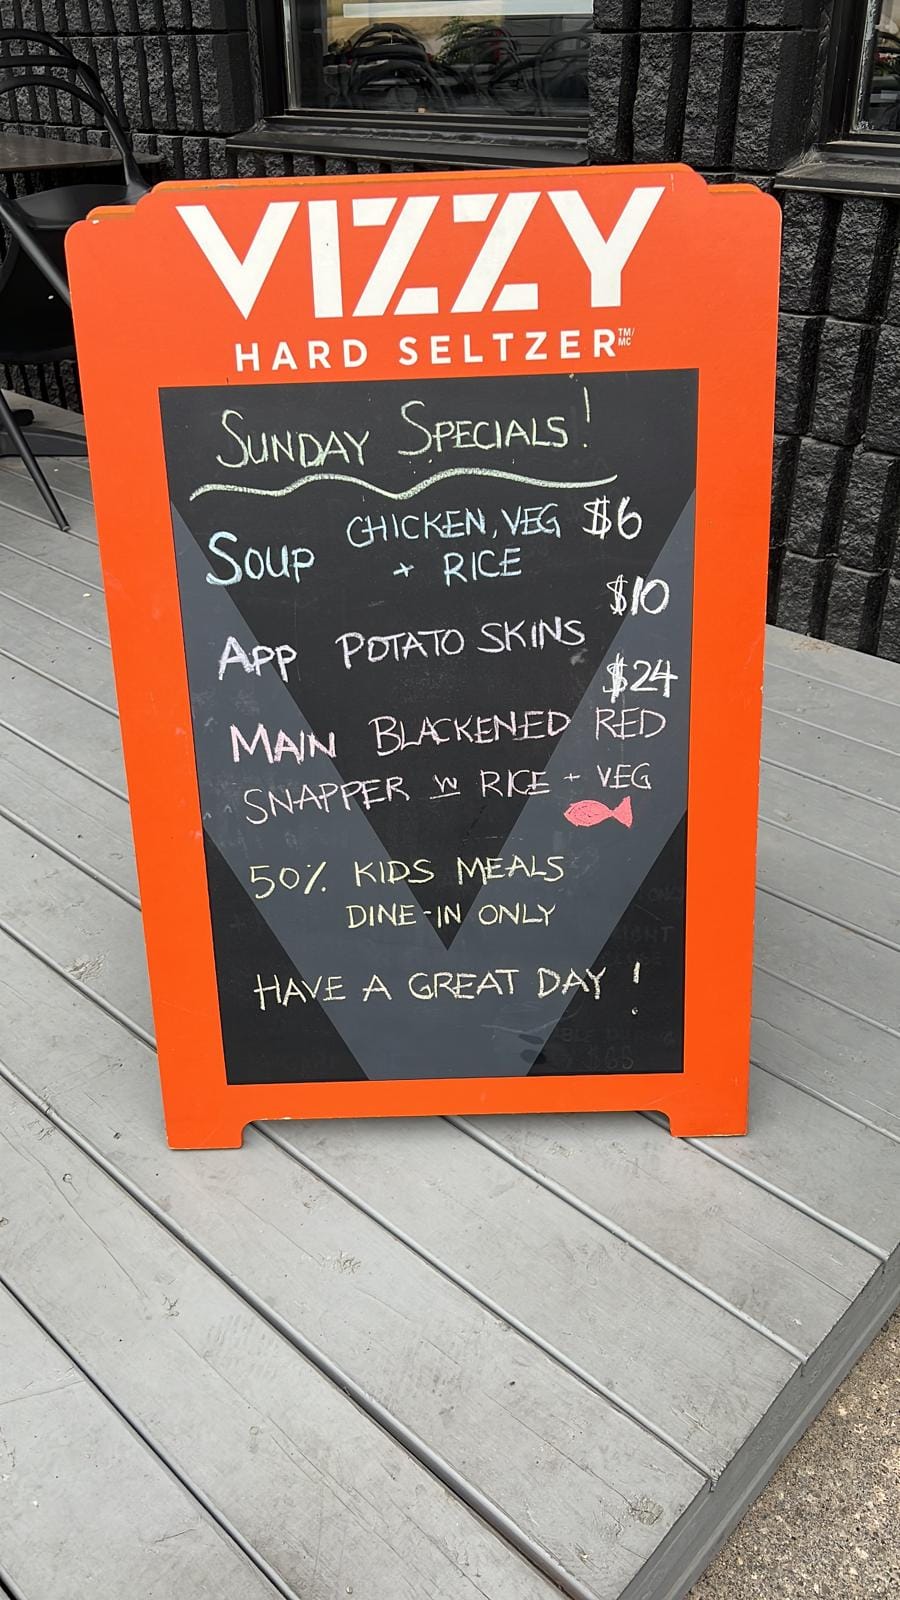 VIZZY
HARD SELTZER TM/MC
SUNDAY SPECIALS!
SOUP CHICKEN, VEG $6
+ RICE
$10
APP POTATO SKINS
$24
MAIN BLACKENED RED
SNAPPER W RICE + VEG
50% KIDS MEALS
DINE-IN ONLY
HAVE A GREAT DAY!